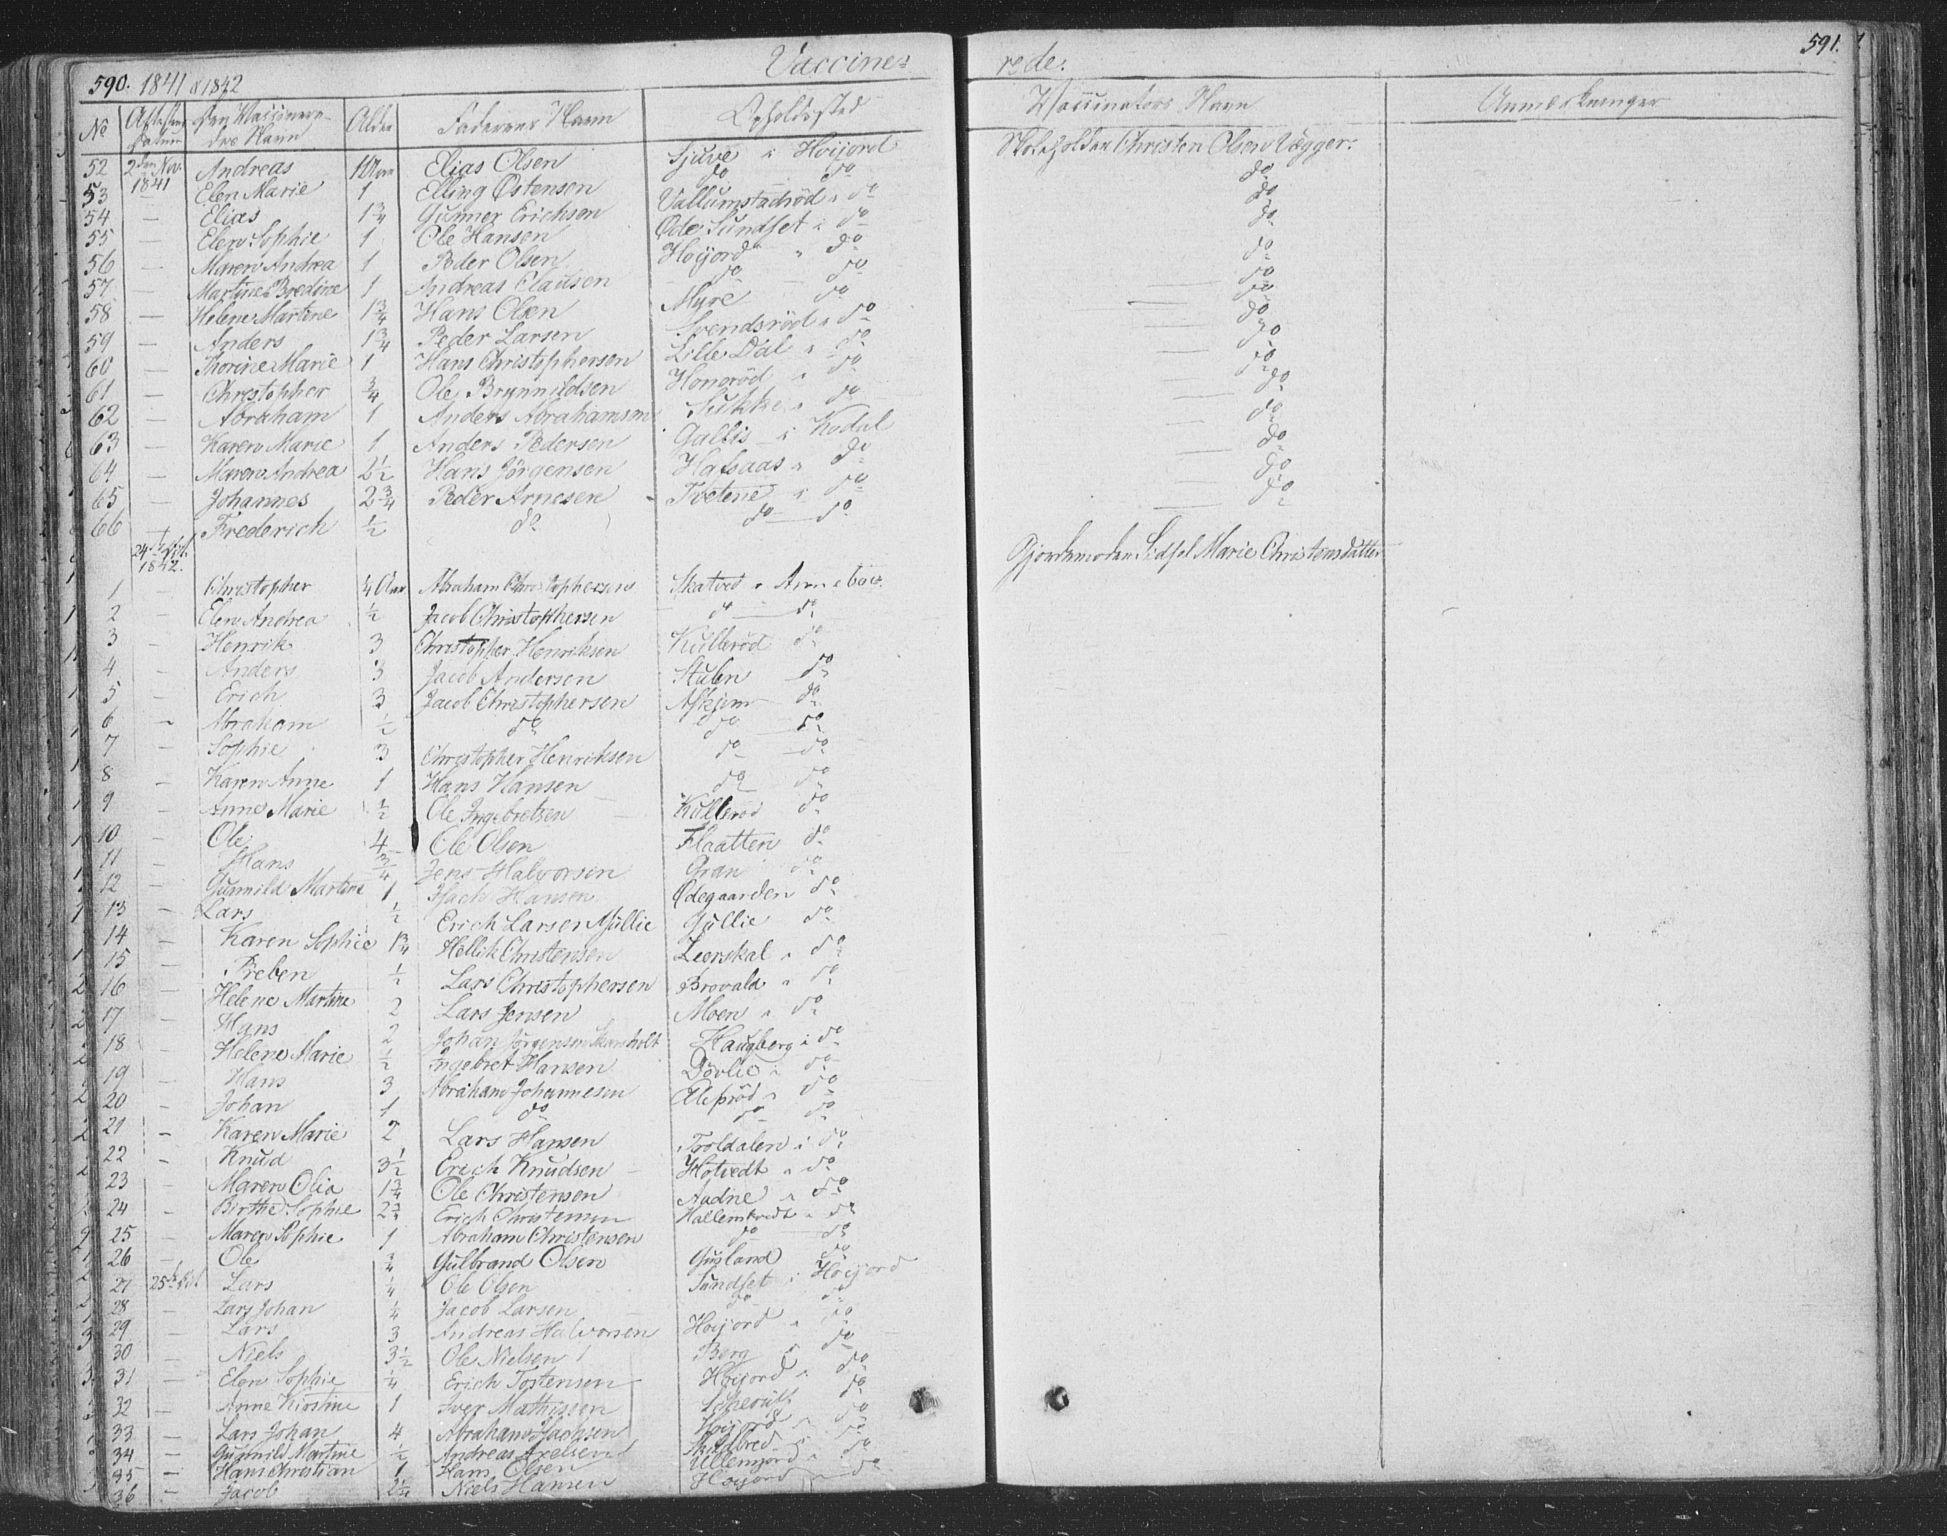 590. 1841 & 1842 Vaccine= rede. 591.
No Attestens Datum Den Vaccineredes Navn Alder Faderens Navn Opholdssted Vaccinators Navn Anmerkninger
52 2den Nov. 1841 Andreas 1 Elias Olsen Sjuve i Hoijord Skoleholder Christen Olsen Vegger.
53 — Elen Marie 1 Elling Østensen do do do
54 — Elias 1 3/4 Gunner Erichsen do do
55 — Elen Sophie 1 Ole Hansen Øde Sundset i do do
56 — Maren Andrea 1 Peder Olsen Hoijord " do do
57 — Martine Bredine 1 Andreas Clausen do do do
58 — Helene Martine 1 3/4 Hans Olsen Myre do do
59 — Anders 1 3/4 Peder Larsen Svendsröd " do do
60 — Thorine Marie 1 Hans Christophersen Lille Dal " do do
61 — Christopher 3/4 Ole Brynnildsen Honoröd " do do
62 — Abraham 1 Anders Abrahamsen Sukke " do do
63 — Karen Marie 1 Anders Pedersen Gallis i Kodal do
64 — Maren Andrea 2 1/2 Hans Jörgensen Hafsaas " do do
65 — Johannes 2 3/4 Peder Arnesen Tvetene i do do
66 — Frederich 1/2 do do do do
24de Oct. 1842. Gjordemoder Sidsel Marie Christensdatter
1 — Christopher 4 Abraham Christophersen Skatved " Anneboe
2 — Elen Andrea 1/2 Jacob Christophersen do do
3 — Henrik 3 Christopher Henriksen Kulleröd do
4 — Anders 3 Jacob Andersen Stuben do
5 — Erich 3 Jacob Christophersen Askjem do
6 — Abraham 1/2 do do do
7 — Sophie 3 Christopher Henriksen do do
8 — Karen Anne 1 Hans Hansen do do
9 — Anne Marie 1/2 Ole Ingebretsen Kulleröd do
10 — Ole 4 Ole Olsen Flaatten do
11 — Hans 3/4 Jens Halvorsen Gran do
12 — Gunnild Martine 1 Isach Hansen Ødegaarden do
13 — Lars 1/2 Erich Larsen Gullie do
14 — Karen Sophie 1 3/4 Hellik Christensen Leerskal " do
15 — Preben 1/2 Lars Christophersen Brovald " do
16 — Helene Martine 2 Lars Jensen Moen " do
17 — Hans 2 Johan Jörgensen Skarsholt Haugberg i do
18 — Helene Marie 1/2 Ingebret Hansen Dövlie " do
19 — Hans 3 Abraham Johannesen do
20 — Johan 1 do do do
21 — Karen Marie 2 Lars Hansen Troldalen i do
22 — Knud 3 1/2 Erich Knudsen Hotvedt " do
23 — Maren Olia 1 3/4 Ole Christensen Aadne " do
24 — Birthe Sophie 2 3/4 Erich Christensen Hallemtvedt " do
25 — Maren Sophie 1 Abraham Christensen do do
26 — Ole 3/4 Gulbrand Olsen Gusland do
27 25de Oct. Lars 1/4 Ole Olsen Sundset i Hoijord
28 — Lars Johan 1/4 Jacob Larsen do do
29 — Lars 3 Andreas Halvorsen Hoijord " do
30 — Niels 3 1/2 Ole Nielsen Berg " do
31 — Elen Sophie 1/4 Erich Tostensen Hoijord " do
32 — Anne Kirstine 1 Iver Mathissen do
33 — Lars Johan 4 Abraham Isachsen Hoijord do
34 — Gunnild Martine 1/2 Andreas Axelsen do
35 — Hans Christian 1 Hans Olsen do
36 — Jacob 2 1/4 Niels Hansen Hoijord do